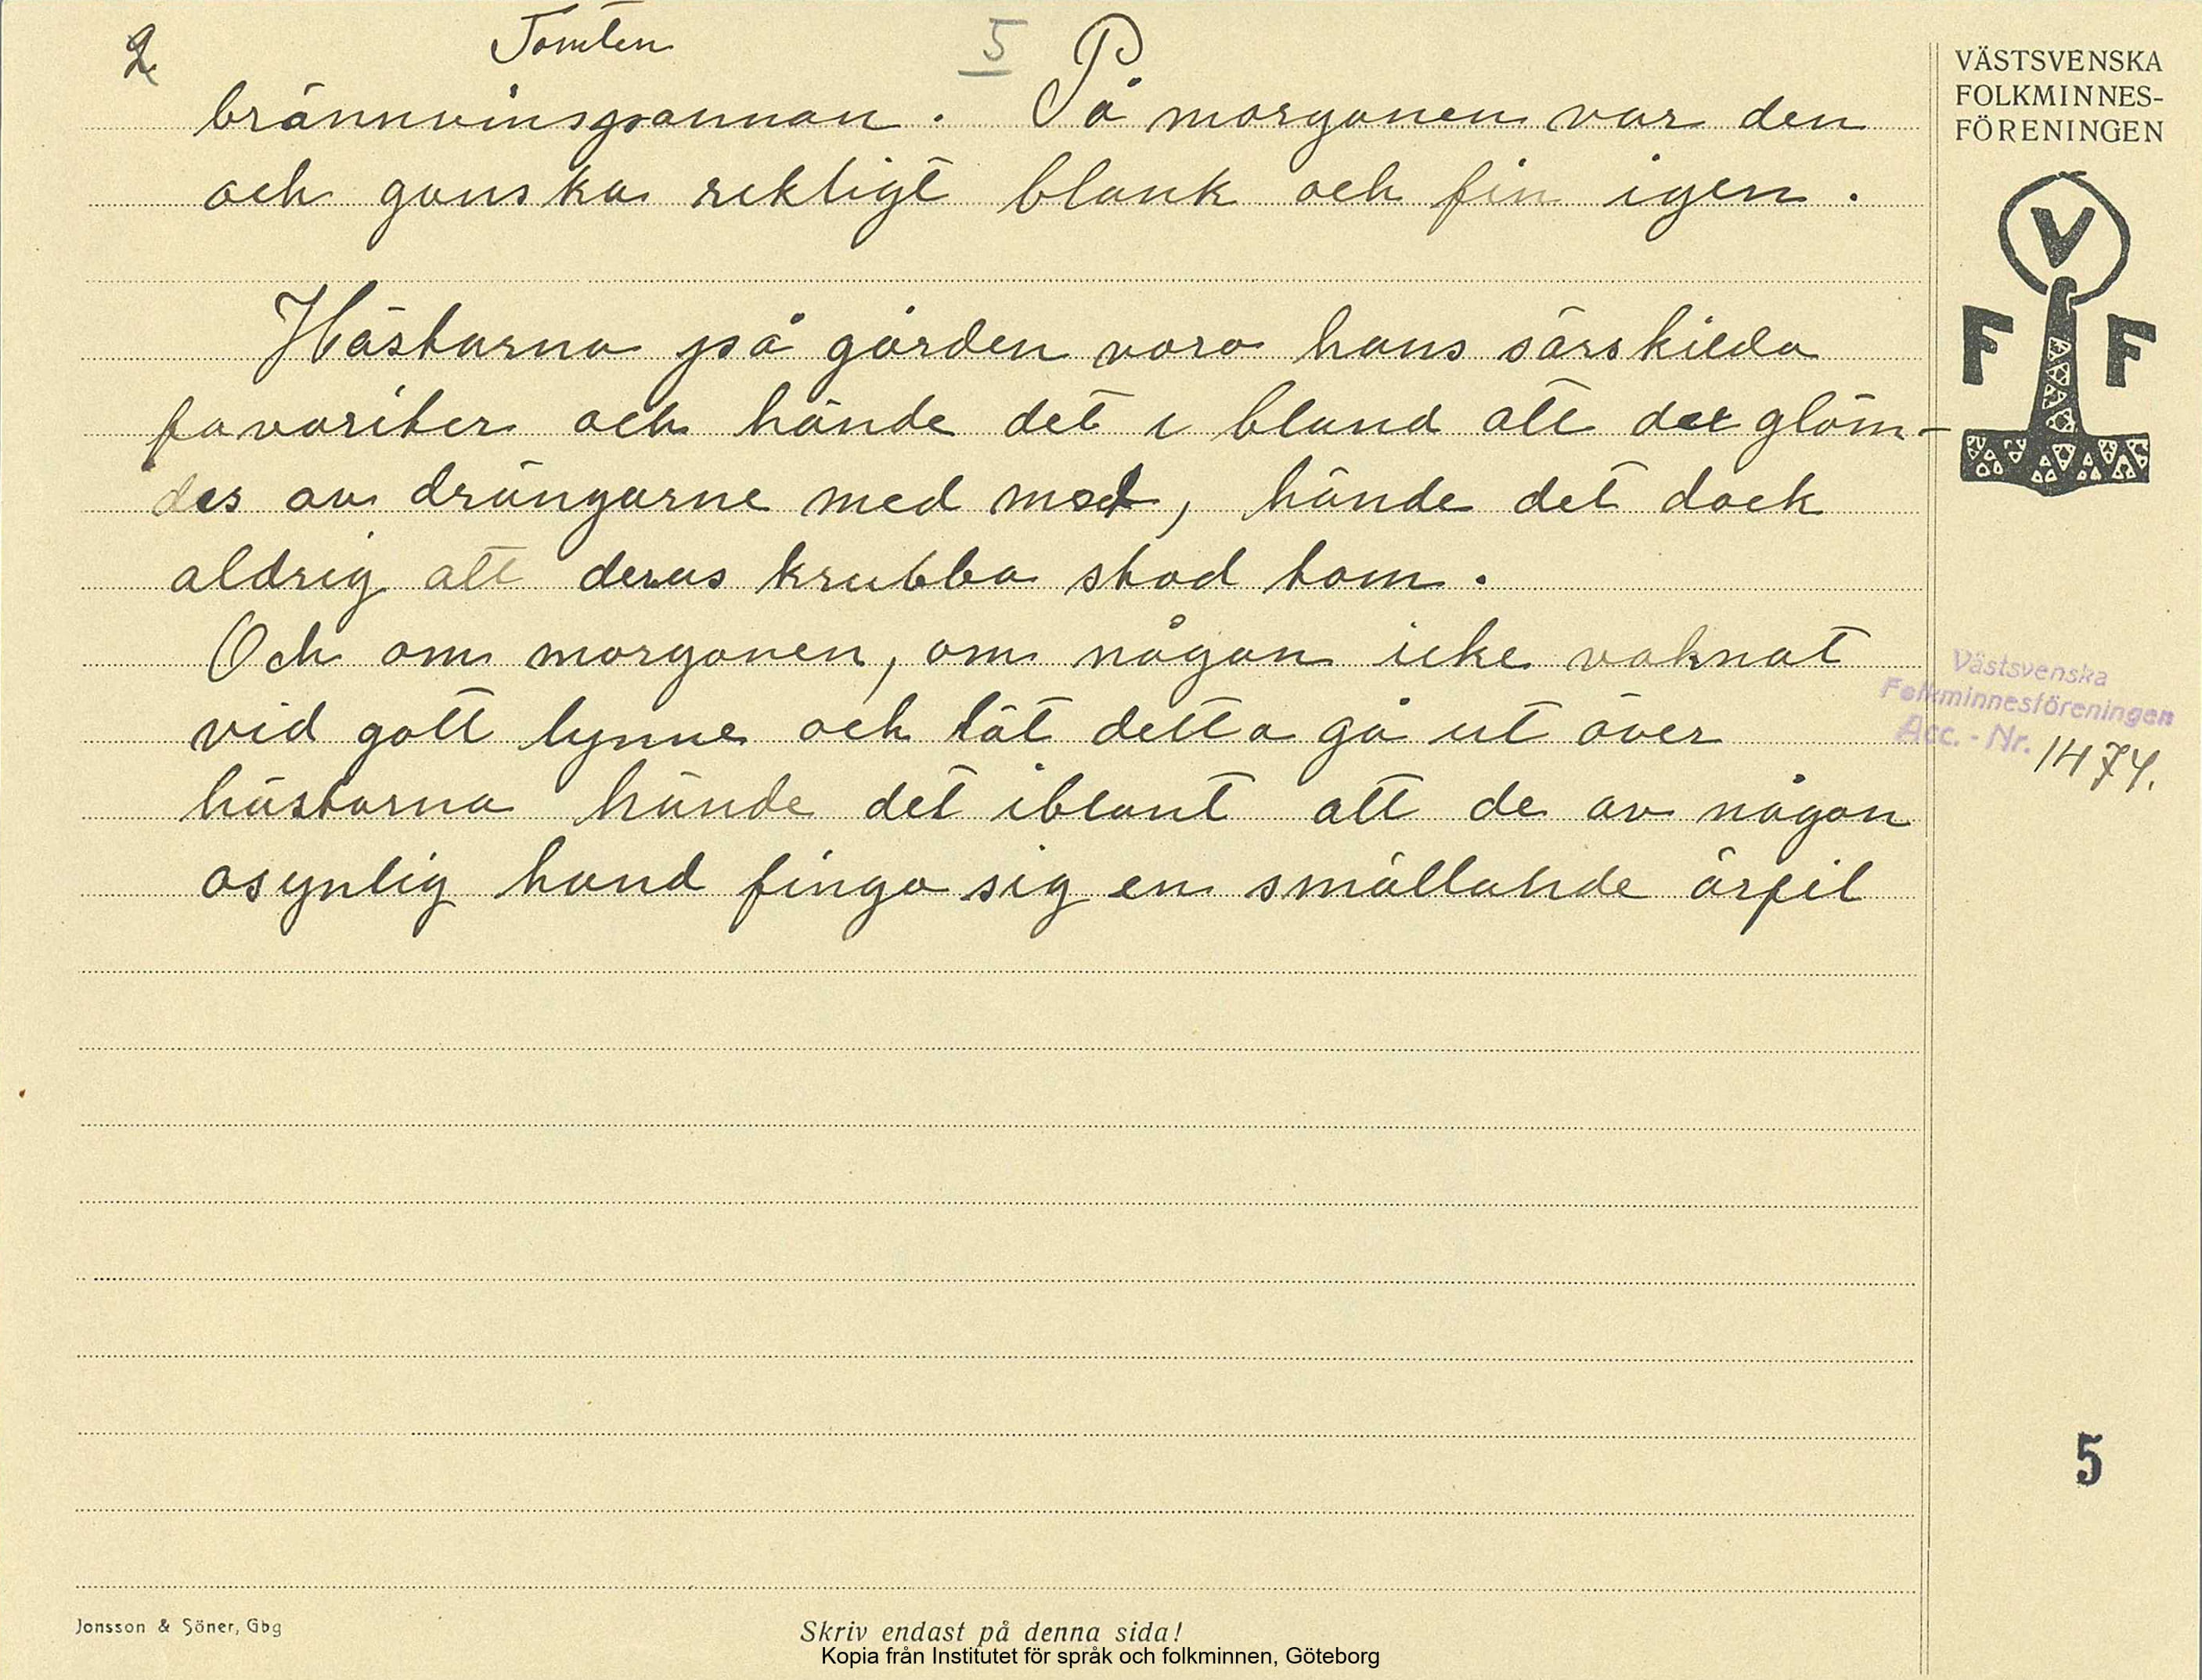 2 Tomten 5
brännvinspannan. På morgonen var den
och ganska rektigt blank och fin igen.
Hästarna på gården voro hans särskilda
favoriter och hände det i bland att det glöm-
des av drängarne med mat, hände det dock
aldrig att deras krubba stod tom.
Och om morgonen, om någon icke vaknat
vid gott lynne och låt detta gå ut över
hästarna hände det iblant att de av någon
osynlig hand fingo sig en smällande örfil
VÄSTSVENSKA
FOLKMINNES-
FÖRENINGEN
V
F F
Västsvenska
Folkminnesföreningen
Acc. - Nr. 1474.
5
Jonsson & Söner, Gbg
Skriv endast på denna sida!
Kopia från Institutet för språk och folkminnen, Göteborg